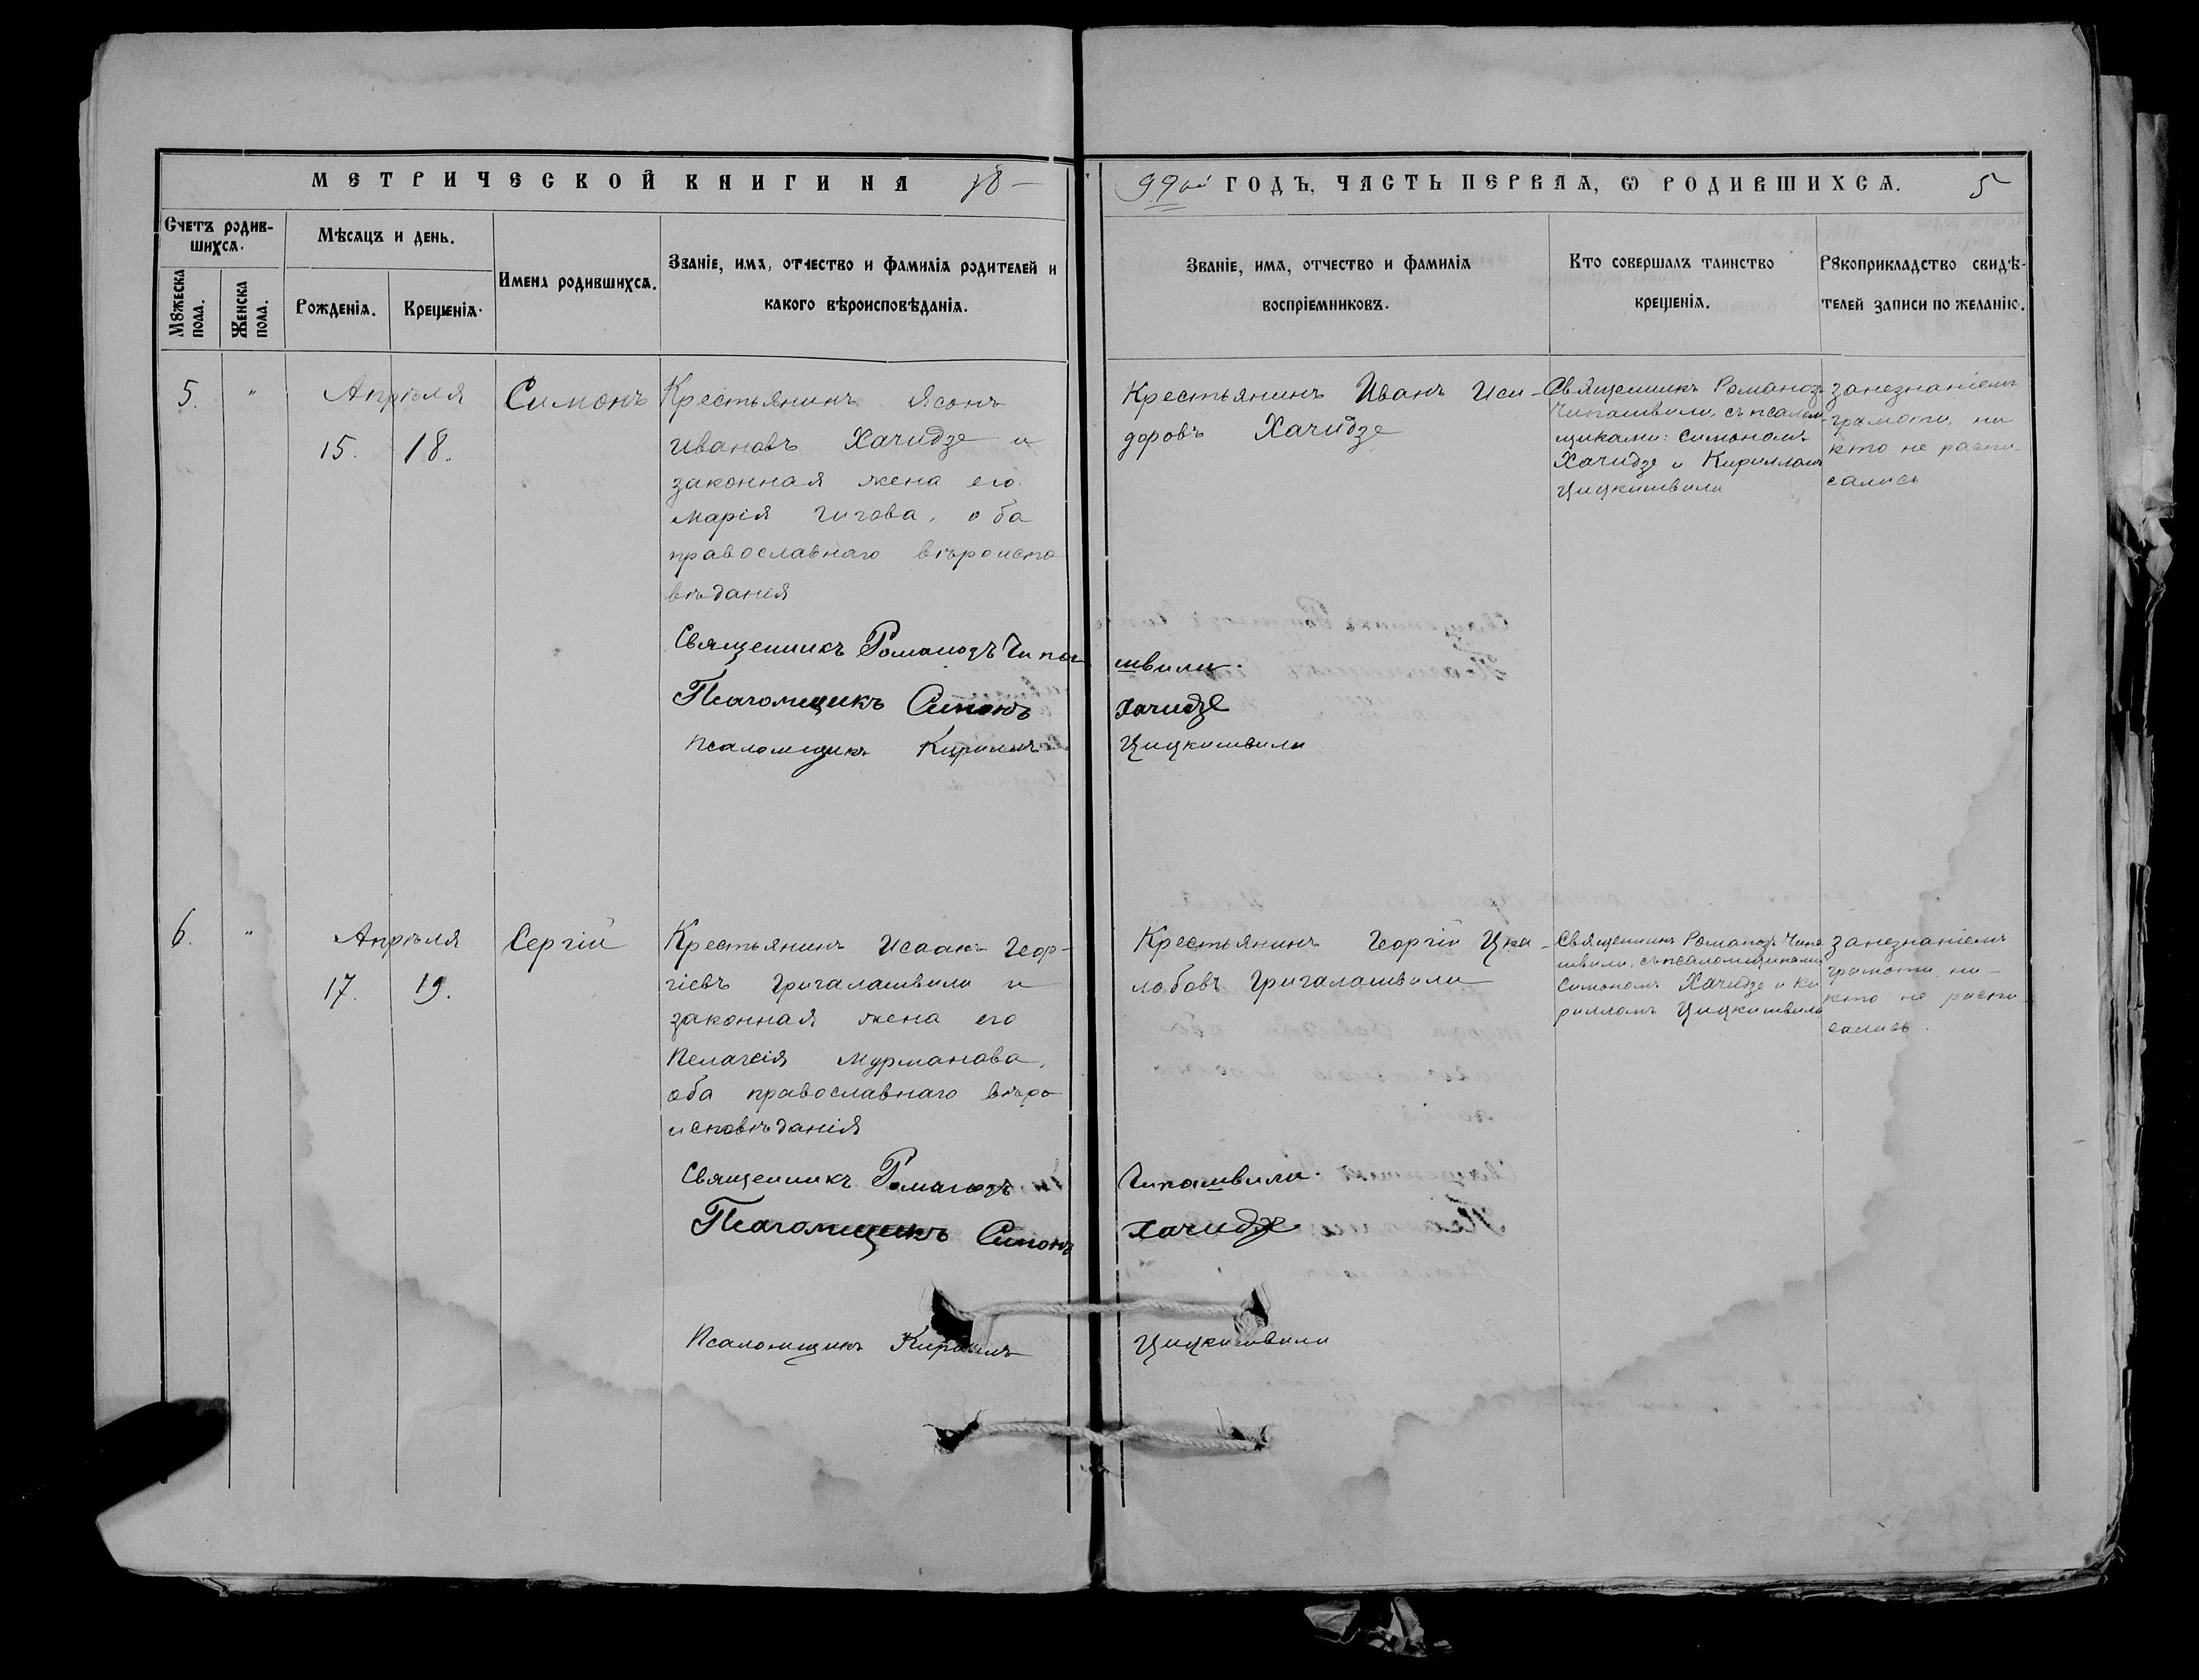 МЕТРИЧЕСКОЙ КНИГИ НА 18—
99ый ГОДЪ, ЧАСТЬ ПЕРВАЯ, Ѡ РОДИВШИХСѦ. 5
Счетъ родив-
шихсѧ.
Мꙋжеска
пола.
Женска
пола.
Мѣсѧцъ и день.
Рожденіѧ.
Крещеніѧ.
Имена родившихсѧ.
Званіе, имѧ, отчество и фамиліѧ родителей и
какого вѣроисповѣданіѧ.
Званіе, имѧ, отчество и фамиліѧ
воспріемниковъ.
Кто совершалъ таинство
крещеніѧ.
Рꙋкоприкладство свидѣ-
телей записи по желанію.
5. "
Апрѣля
15. 18.
Симонъ
Крестьянинъ Ясонъ
Ивановъ Хачидзе и
законная жена его
Марія Гигова, оба
православнаго вѣроиспо
вѣданія
Крестьянинъ Иванъ Иси-
доровъ Хачидзе
Священникъ Романозъ
Чипашвили, съ псалом
щиками: Симономъ
Хачидзе и Кирилломъ
Цицкишвили
занезнаніемъ
грамоти, ни
кто не распи-
сались
Священникъ Романозъ Чипа
швили.
Псаломщикъ Симонъ
Хачидзе
Псаломщикъ Кириллъ
Цицкишвили
6. "
Апрѣля
17. 19.
Сергій
Крестьянинъ Исаакъ Геор-
гіевъ Григалашвили и
законная жена его
Пелагія Мурманова,
оба православнаго вѣро
исповѣданія
Крестьянинъ Георгій Цка-
лобовъ Григалашвили
Священникъ Романозъ Чипа
швили, съ псаломщиками
Симономъ Хачидзе и Ки
рилломъ Цицкишвили
занезнаніемъ
грамоти ни-
кто не распи
сались.
Священникъ Романозъ
Чипашвили.
Псаломщикъ Симонъ
Хачидзе
Псаломщикъ Кириллъ
Цицкишвили